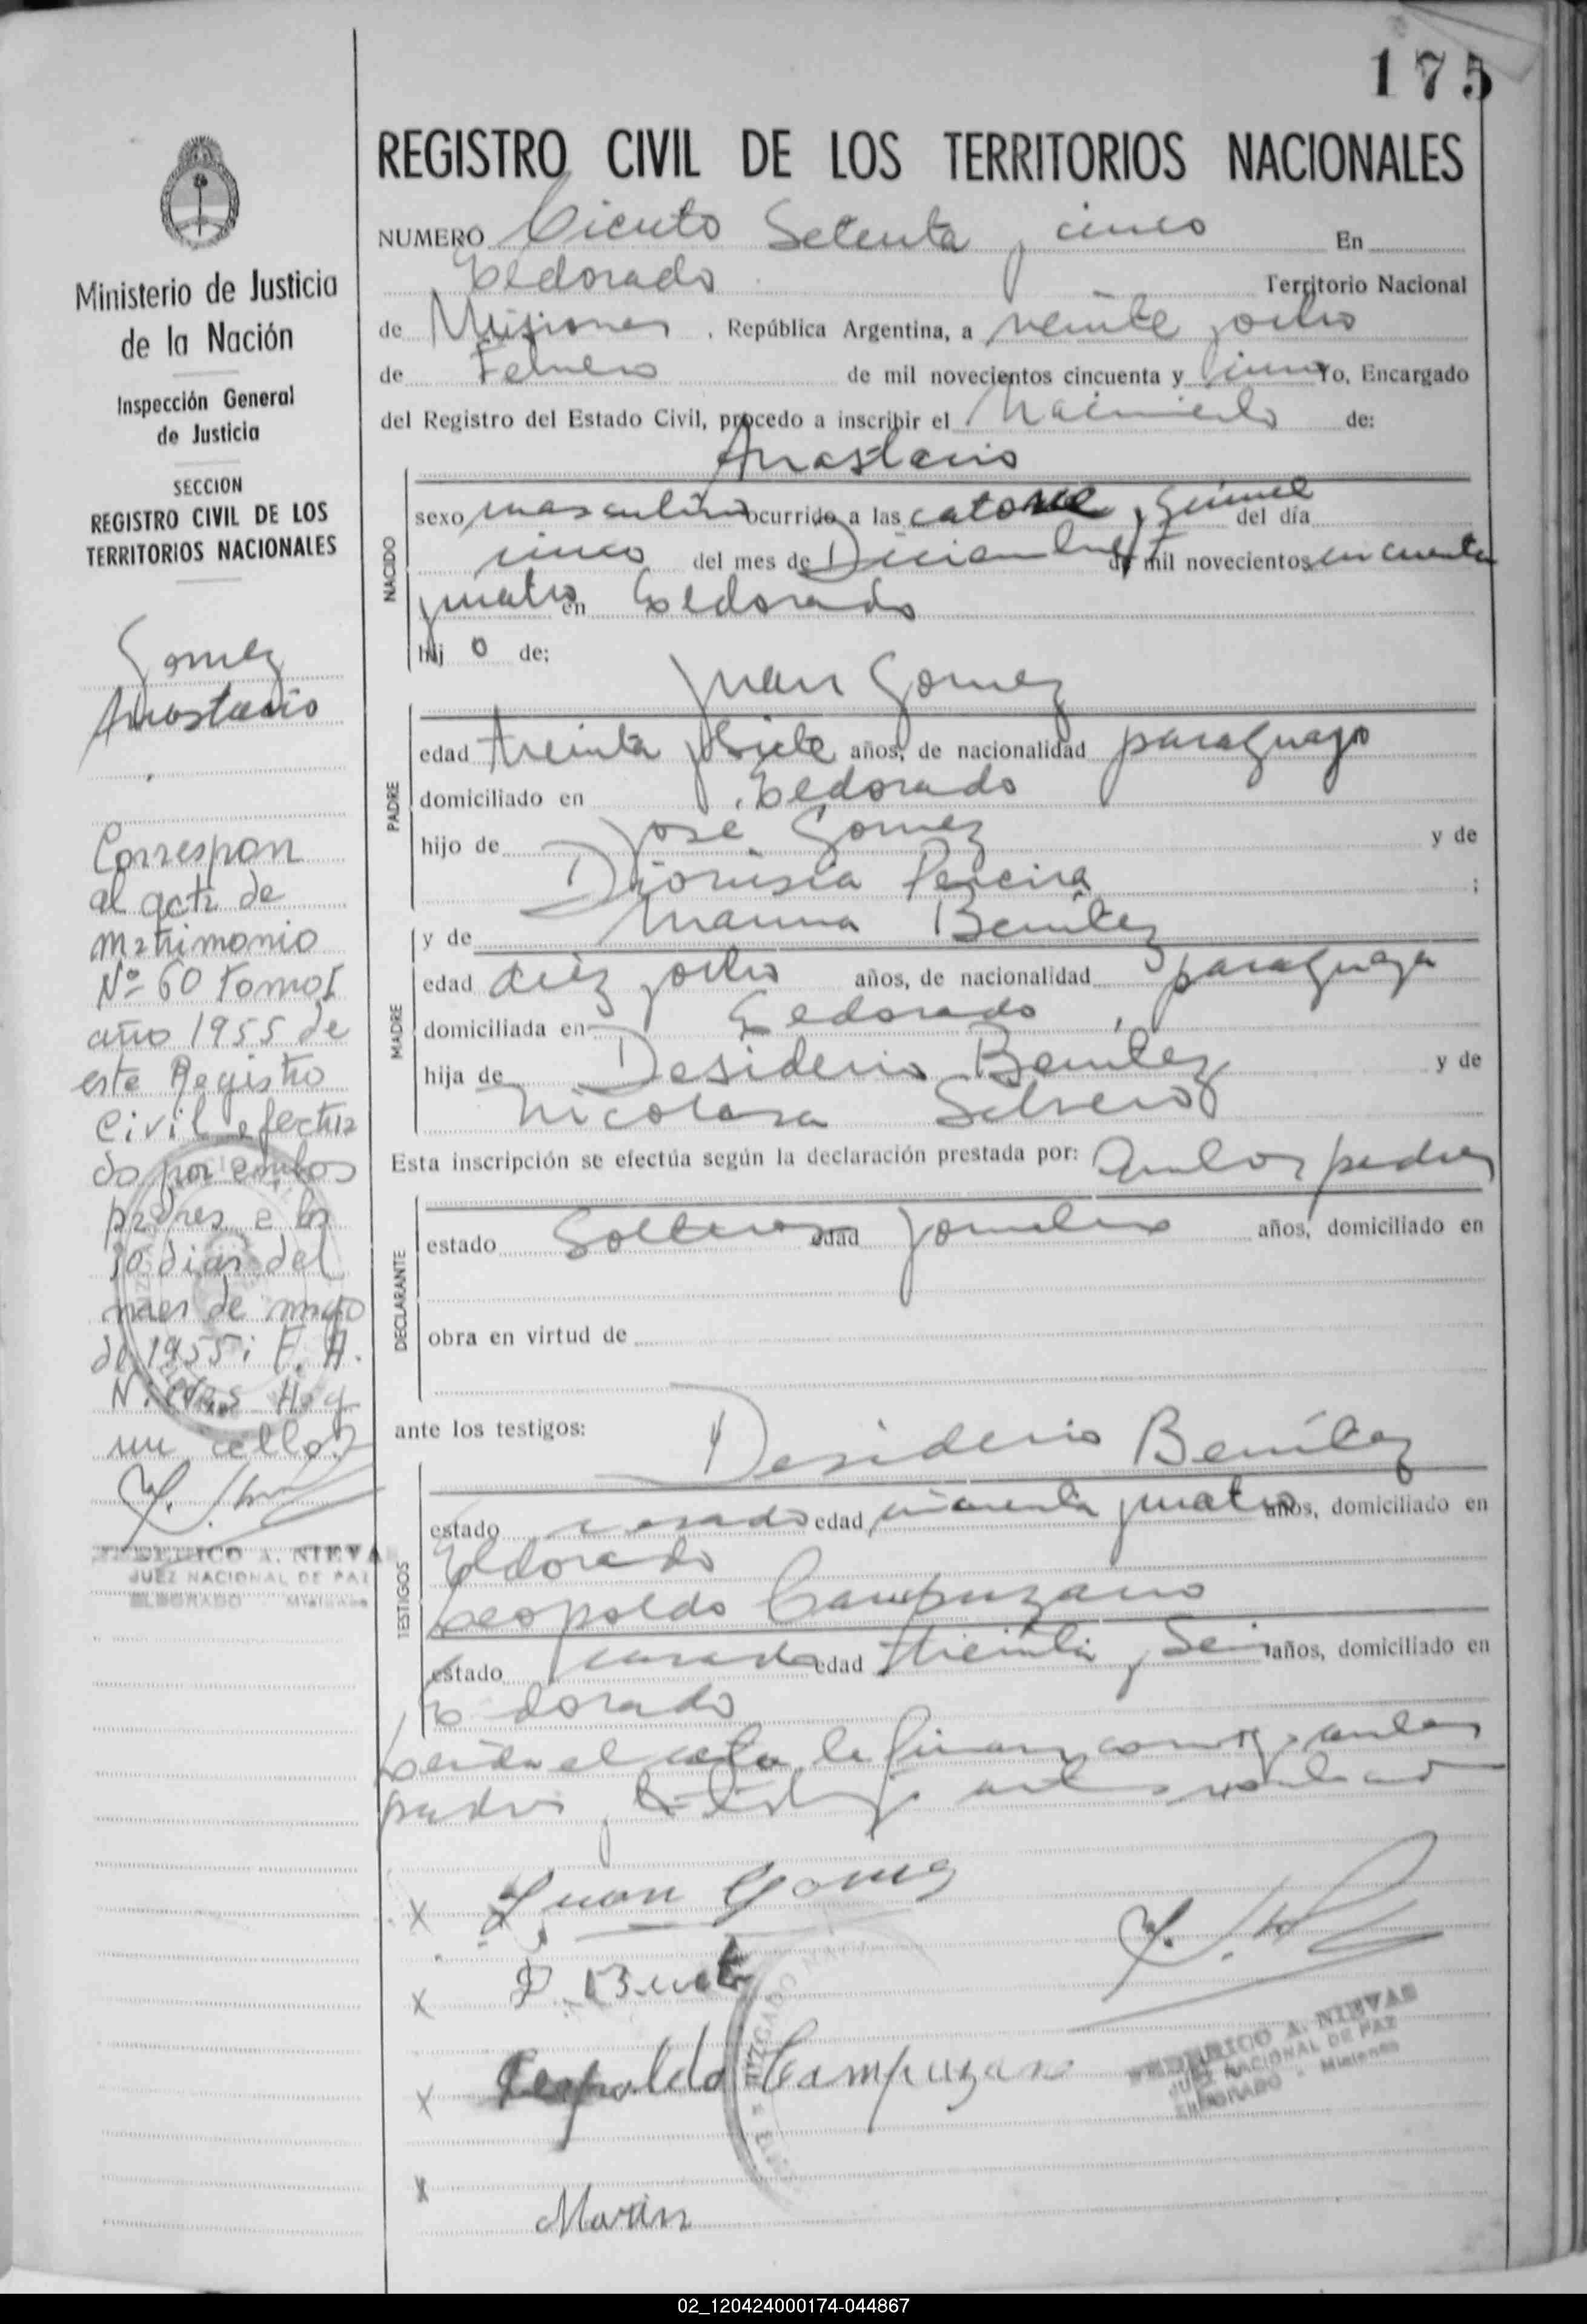 175
REGISTRO CIVIL DE LOS TERRITORIOS NACIONALES
Ministerio de Justicia
de la Nación
Inspección General
de Justicia
SECCION
REGISTRO CIVIL DE LOS
TERRITORIOS NACIONALES
Gomez
Anastacio
Correspon
al acta de
matrimonio
Nº 60 tomo I
año 1955 de
este Registro
Civil efectua
do por ambos
padres a los
días del
mes de mayo
de 1955: F. A.
Nievas Hay
un sello
FEDERICO A. NIEVAS
JUEZ NACIONAL DE PAZ
ELDORADO - Misiones
NUMERO Ciento Setenta y cinco En
Eldorado Territorio Nacional
de Misiones, República Argentina, a veinte y ocho
de Febrero de mil novecientos cincuenta y cinco Yo, Encargado
del Registro del Estado Civil, procedo a inscribir el Nacimiento de:
Anastacio
NACIDO
sexo masculino ocurrido a las catorce y quince del día
cinco del mes de Diciembre de mil novecientos cincuenta
y cuatro en Eldorado
hij o de:
Juan Gomez
PADRE
edad treinta y siete años, de nacionalidad paraguayo
domiciliado en Eldorado
hijo de José Gomez y de
Dionisia Pereira ;
y de Benitez
MADRE
edad diez y ocho años, de nacionalidad paraguaya
domiciliada en Eldorado
hija de Desiderio Benitez y de
Nicolasa Silvero
Esta inscripción se efectúa según la declaración prestada por: Ambos padres
DECLARANTE
estado Solteros edad y años, domiciliado en
obra en virtud de
ante los testigos:
Desiderio Benítez
TESTIGOS
estado casado edad cuarenta y cuatro años, domiciliado en
Eldorado
Leopoldo Campuzano
estado casado edad treinta y Seis años, domiciliado en
Eldorado
Leida el acta la firman conmigo ambos
padres y testigos
X Juan Gomez
X D. Benitez
X Leopoldo Campuzano
X
FEDERICO A. NIEVAS
JUEZ NACIONAL DE PAZ
ELDORADO - Misiones
JUZGADO
02_120424000174-044867